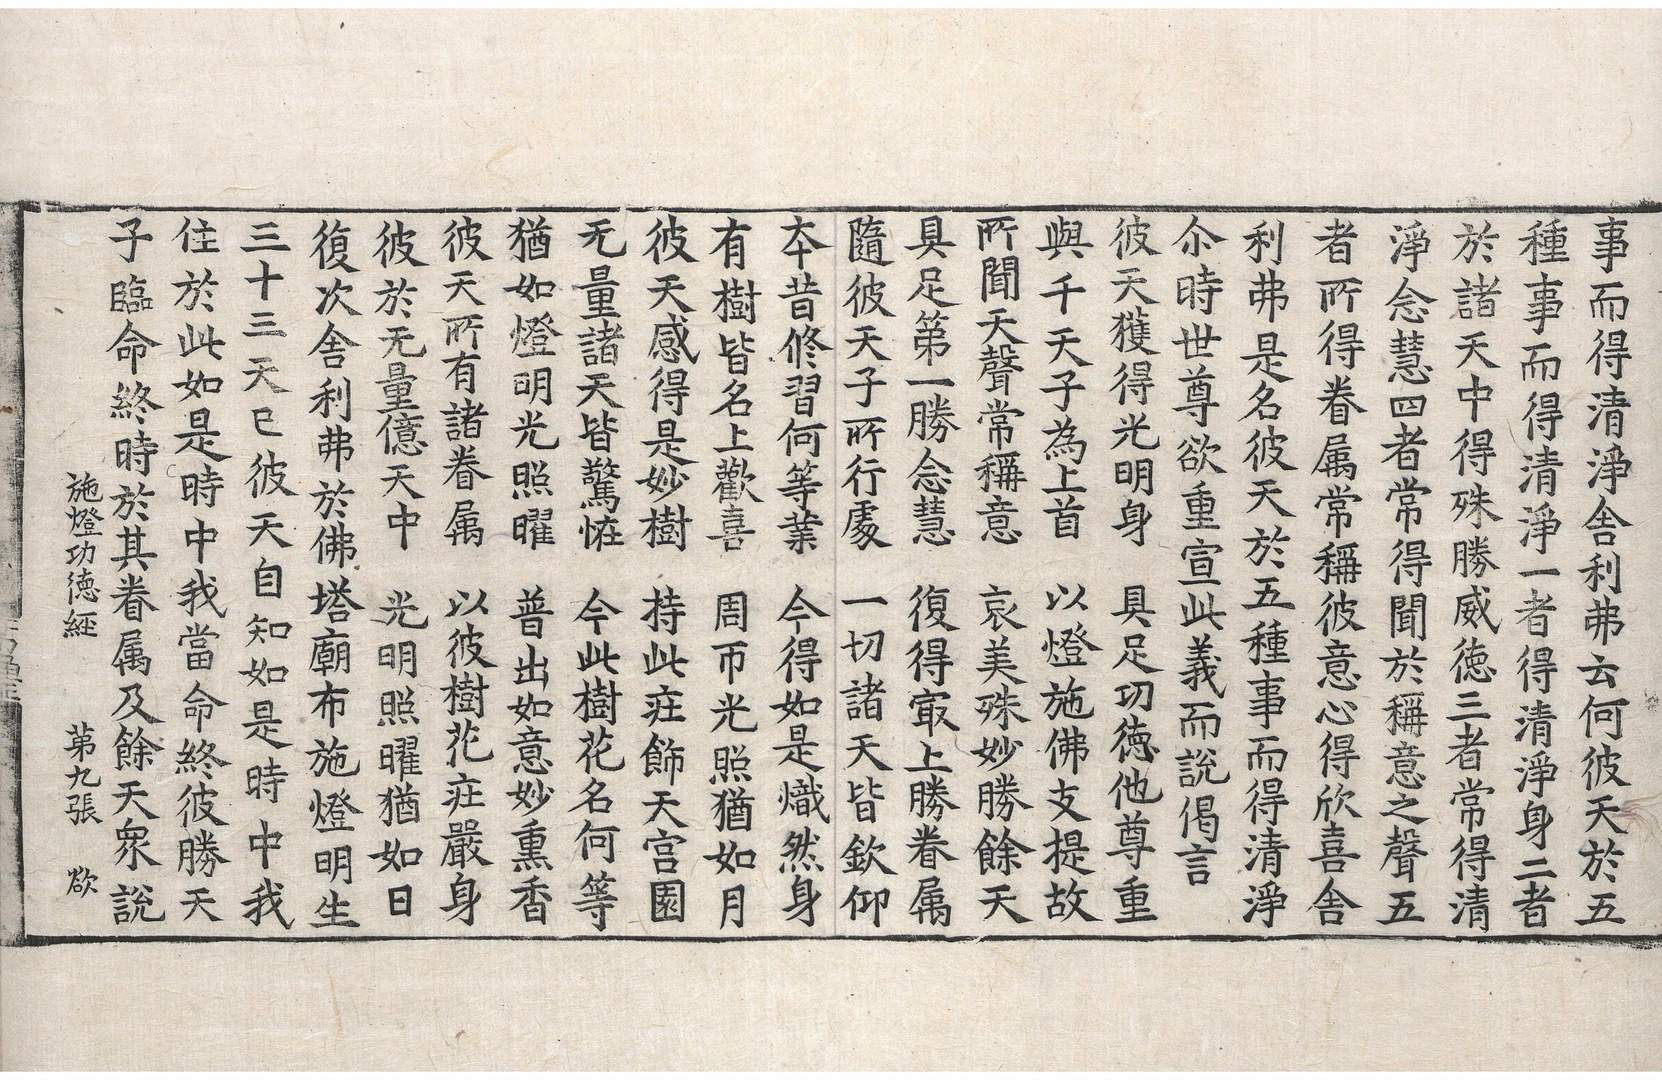 事而得清淨舎利弗云何彼天於五
種事而得清淨一者得清淨身二者
於諸天中得殊勝威徳三者常得清
淨念慧四者常得聞於稱意之聲五
者所得眷属常稱彼意心得欣喜舎
利弗是名彼天於五種事而得清淨
尒時世尊欲重宣此義而說偈言
彼天獲得光明身　具足功徳他尊重
與千天子為上首　以燈施佛支提故
所聞天聲常稱意　哀美殊妙勝餘天
具足第一勝念慧　復得㝡上勝眷属
隨彼天子所行處　一切諸天皆欽仰
本昔修習何等業　今得如是熾然身
有樹皆名上歡喜　周帀光照猶如月
彼天感得是妙樹　持此庄飾天宮園
无量諸天皆驚恠　今此樹花名何等
猶如燈明光照曜　普出如意妙熏香
彼天所有諸眷属　以彼樹花庄嚴身
彼於无量億天中　光明照曜猶如日
復次舍利弗於佛塔廟布施燈明生
三十三天已彼天自知如是時中我
住於此如是時中我當命終彼勝天
子臨命終時於其眷属及餘天衆說
施燈功德經　第九張　欲